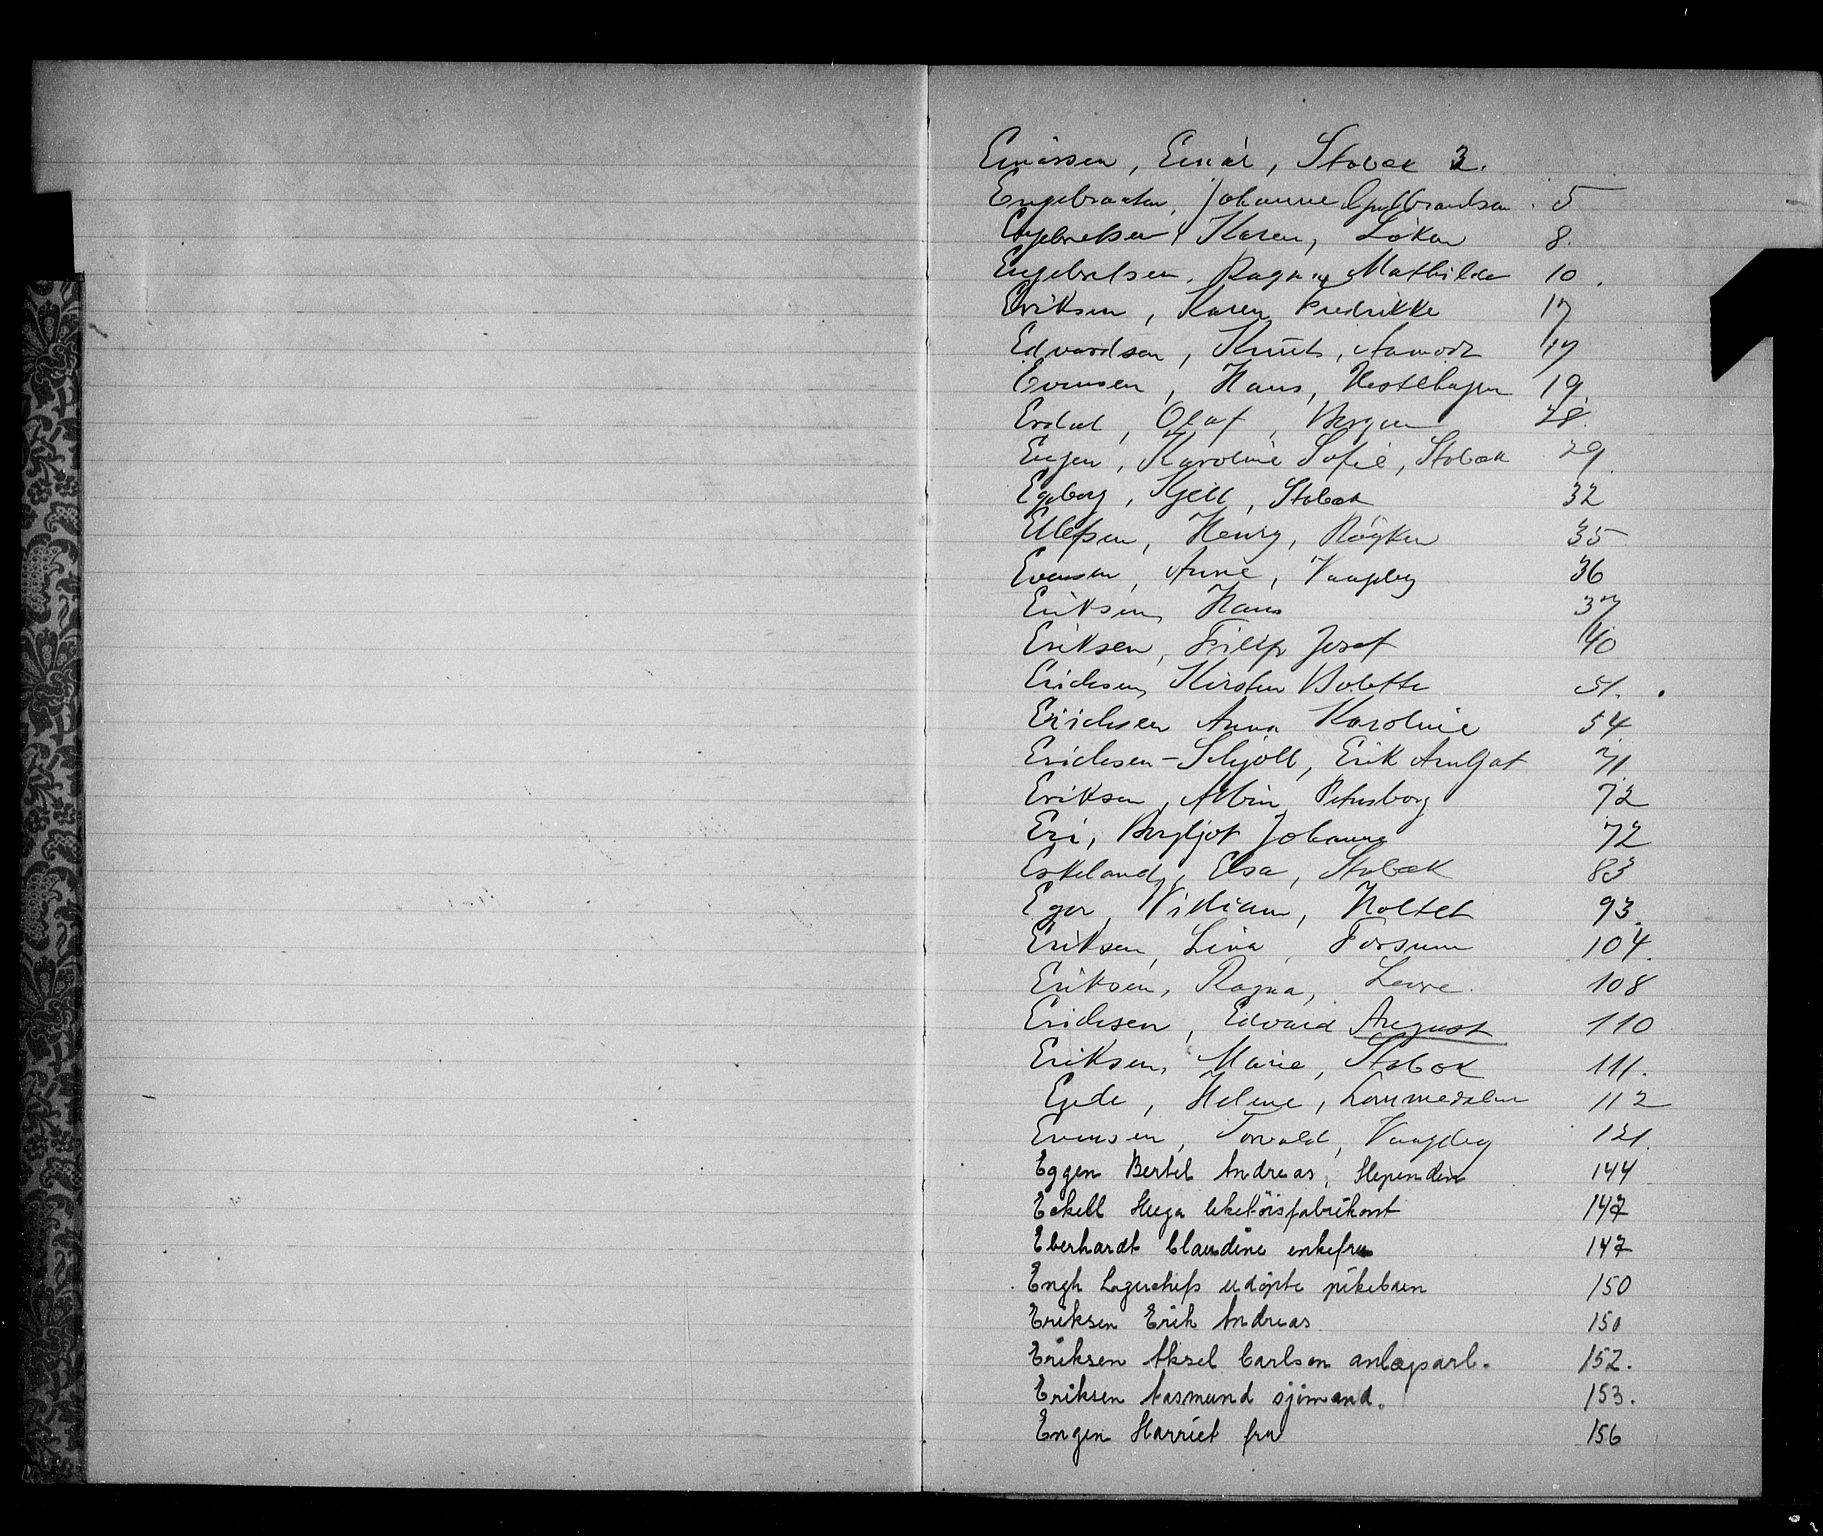 Einarsen, Einar, Stabæk 3.
Engebraaten, Johanne Gulbrandsen 5
Engebretsen, Karen, Løken 8.
Engebretsen, Ragna Mathilde 10.
Eriksen, Karen Fredrikke 17
Edvardsen, Knut, Aamodt 17
Evensen, Hans, Hestehagen 19.
Erdal, Olaf, Bergum 28.
Engen, Karoline Sofie, Stabæk 29.
Egeberg, Kjell, Stabæk 32
Ellefsen, Henry, Røyken 35
Evensen, Anne, Vaageby 36
Eriksen, Hans 37
Eriksen, Filip Josef 40
Erichsen, Kirsten Bolette 51.
Erichsen Anna Karoline 54
Erichsen-Schjöll, Erik Arnljot 71
Eriksen, Albin, Petersborg 72
Eri, Bergljot Johanne 72
Eskeland, Elsa, Stabæk 83
Eger, William, Holtet 93.
Eriksen, Lina, Fossum 104.
Eriksen, Ragna, Levre. 108
Erichsen, Edvard August 110
Eriksen, Marie, Stabæk 111.
Egede, Helene, Lommedalen 112
Evensen, Torvald, Vaageby 121.
Eggen Bertel Andreas, Slependen 144
Eckell Hugo leketøisfabrikant 147
Eberhardt Claudine enkefru 147
Engh udøpte pikebarn 150
Eriksen Erik Andreas 150
Eriksen Aksel Carlsen anlægsarb. 152.
Eriksen Aasmund sjømand. 153.
Engen Harriet fru 156